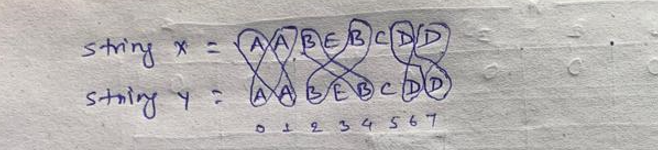 string x = AABEBCDD
string y = AABEBCDD
0 1 2 3 4 5 6 7